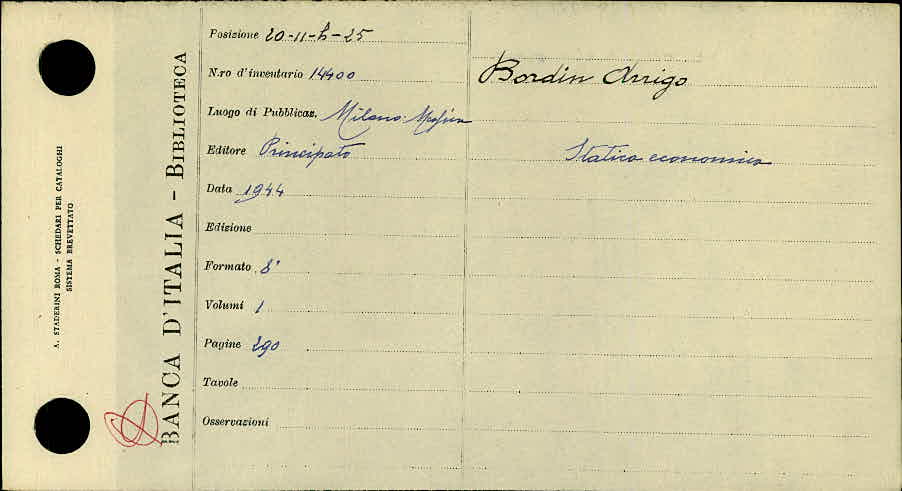 A. STADERINI ROMA - SCHEDARI PER CATALOGHI
SISTEMA BREVETTATO
BANCA D'ITALIA - BIBLIOTECA
Posizione 20-11-h-25
N.ro d'inventario 14400
Luogo di Pubblicaz. Milano-Messina
Editore Principato
Data 1944
Edizione
Formato 8°
Volumi 1
Pagine 290
Tavole
Osservazioni
Bordin Arrigo
Statica economica